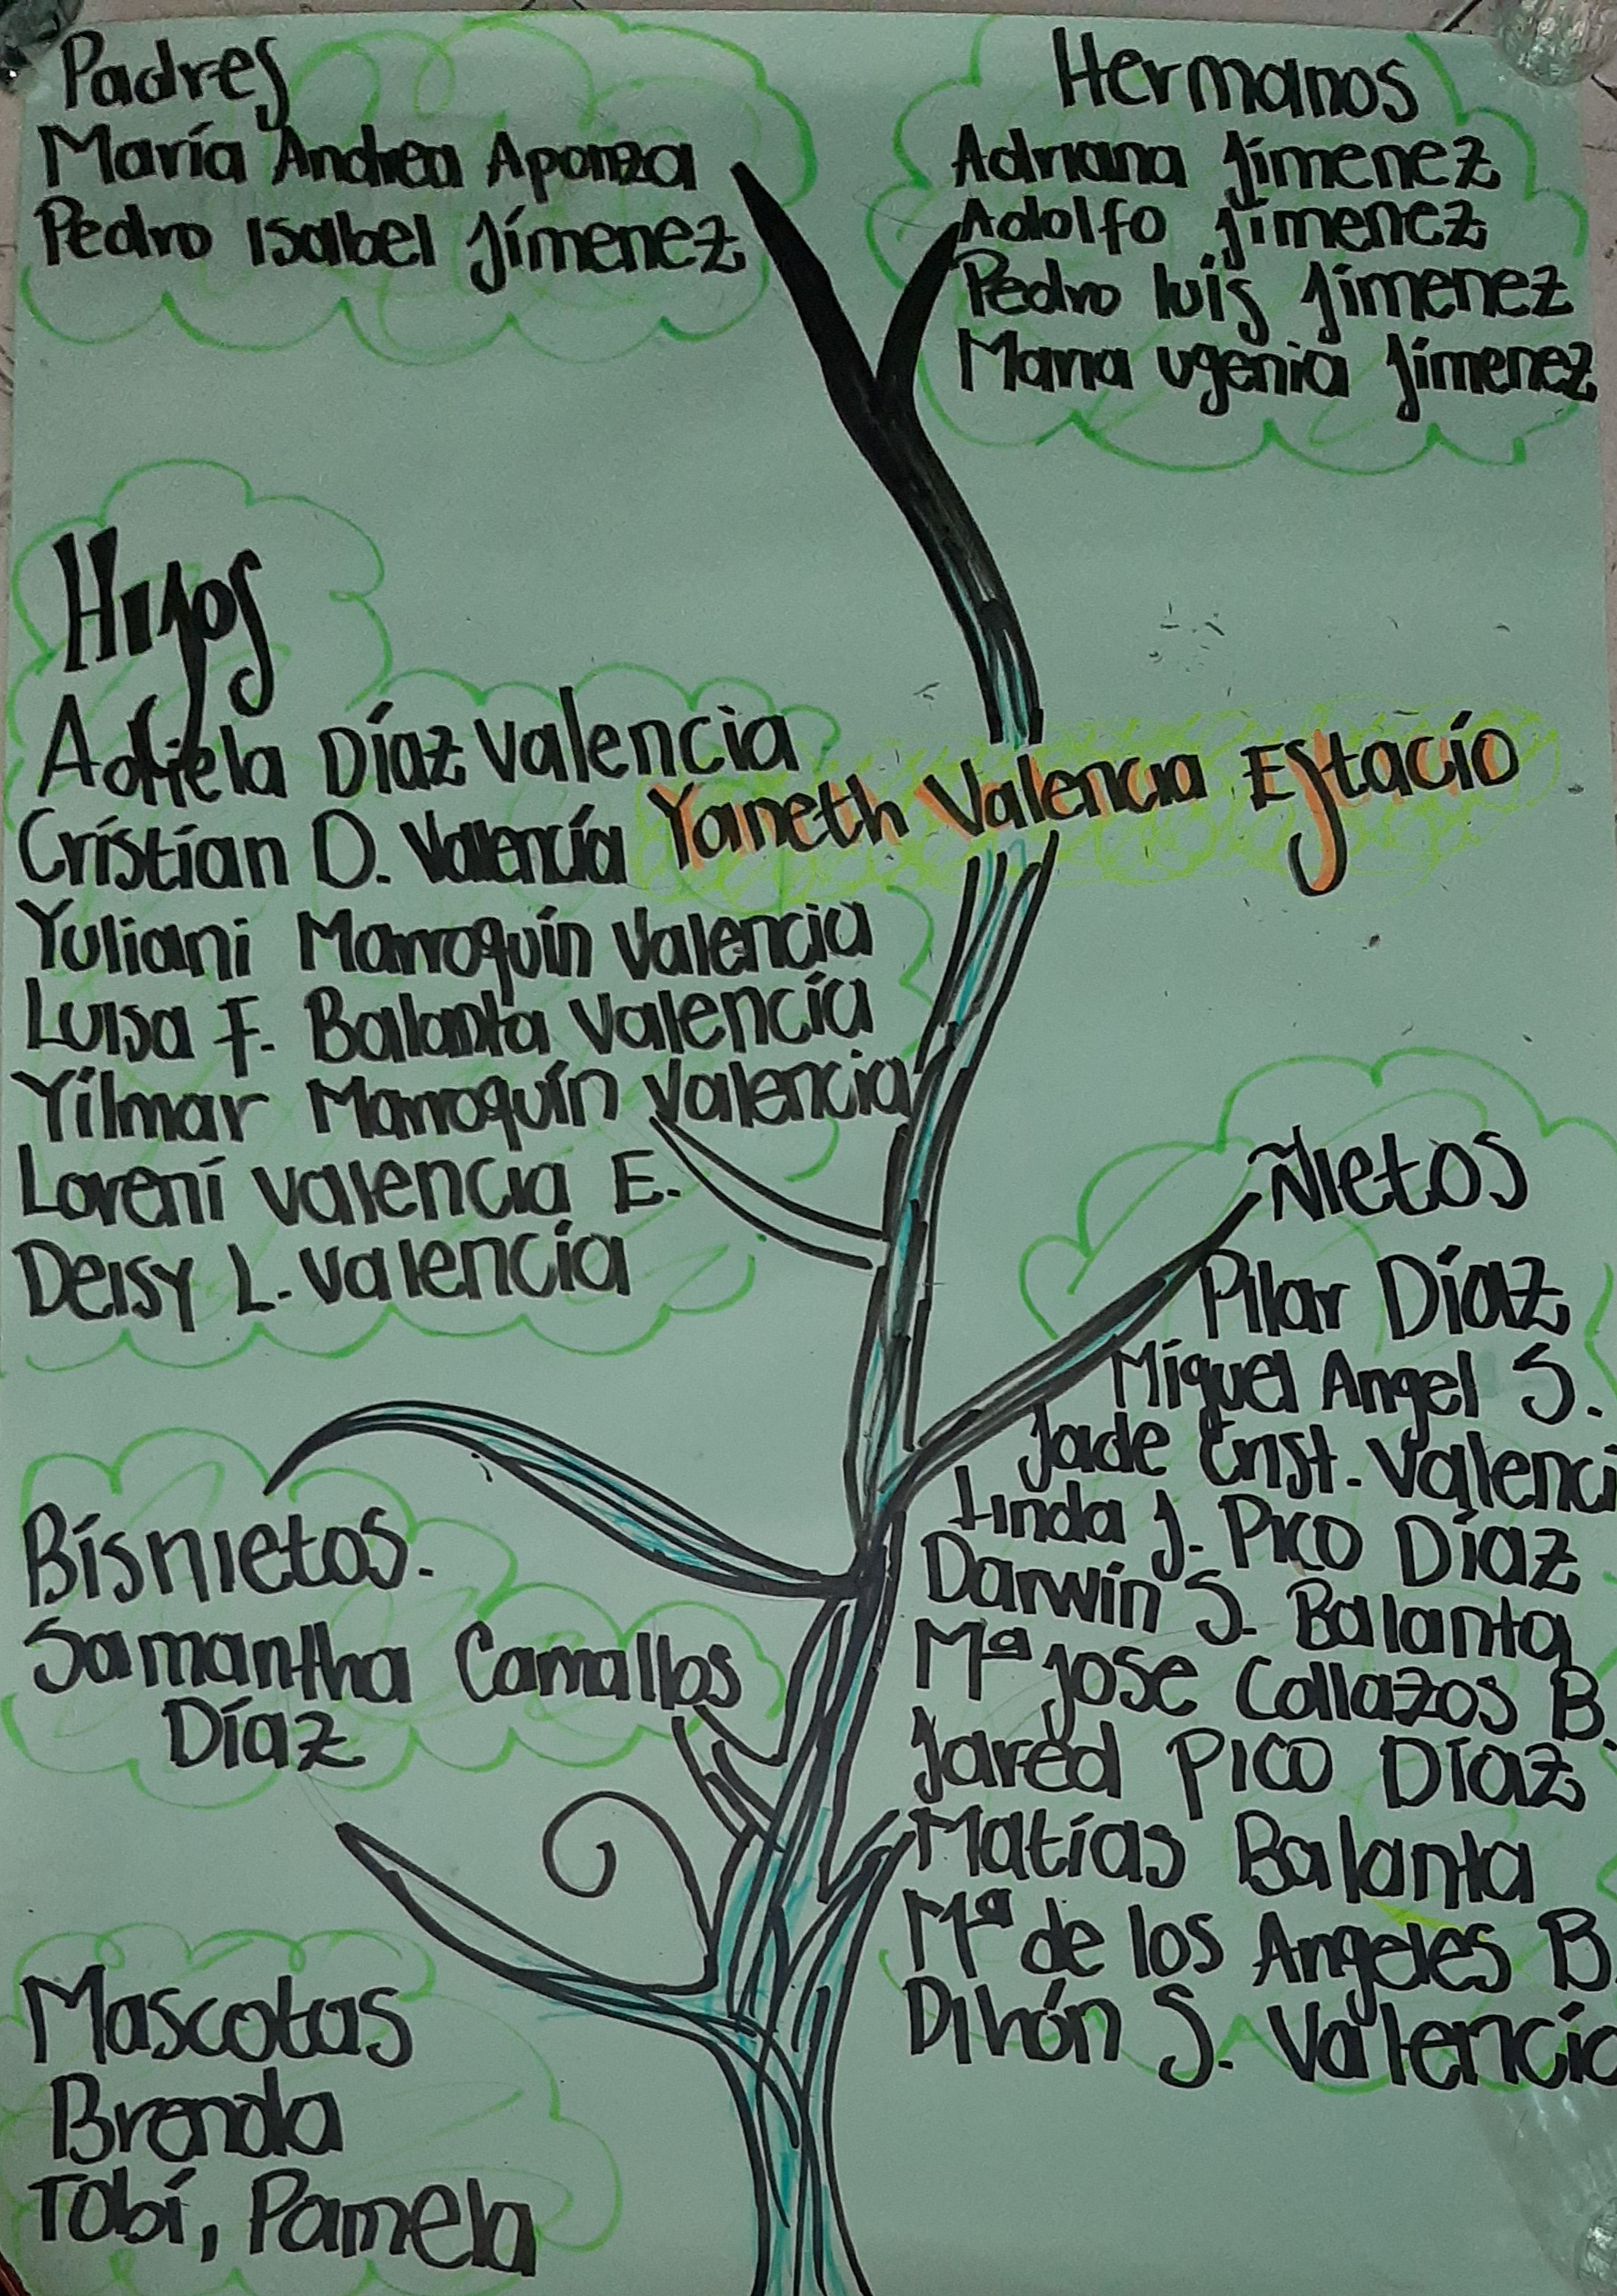 Padres
María Andrea Aponza
Pedro Isabel Jímenez
Hermanos
Adriana Jimenez
Adolfo Jimenez
Pedro luis Jimenez
Maria ugenia Jimenez
Hijos
Adiela Díaz Valencia
Cristian D. Valencia
Yuliani Marroquín Valencia
Luisa F. Balanta Valencia
Yilmar Marroquín Valencia
Loreni Valencia E.
Deisy L. Valencia
Yaneth Valencia Estacio
Ñietos
Pilar Díaz
Miguel Angel S.
Jade Crist. Valenci
Linda J. Pico Díaz
Darwin S. Balanta
Mª Jose Collazos B.
Jared Pico Díaz
Matías Balanta
Mª de los Angeles B
S. Valencia
Bisnietos.
Samantha
Díaz
Mascotas
Brenda
Tobi, Pamela